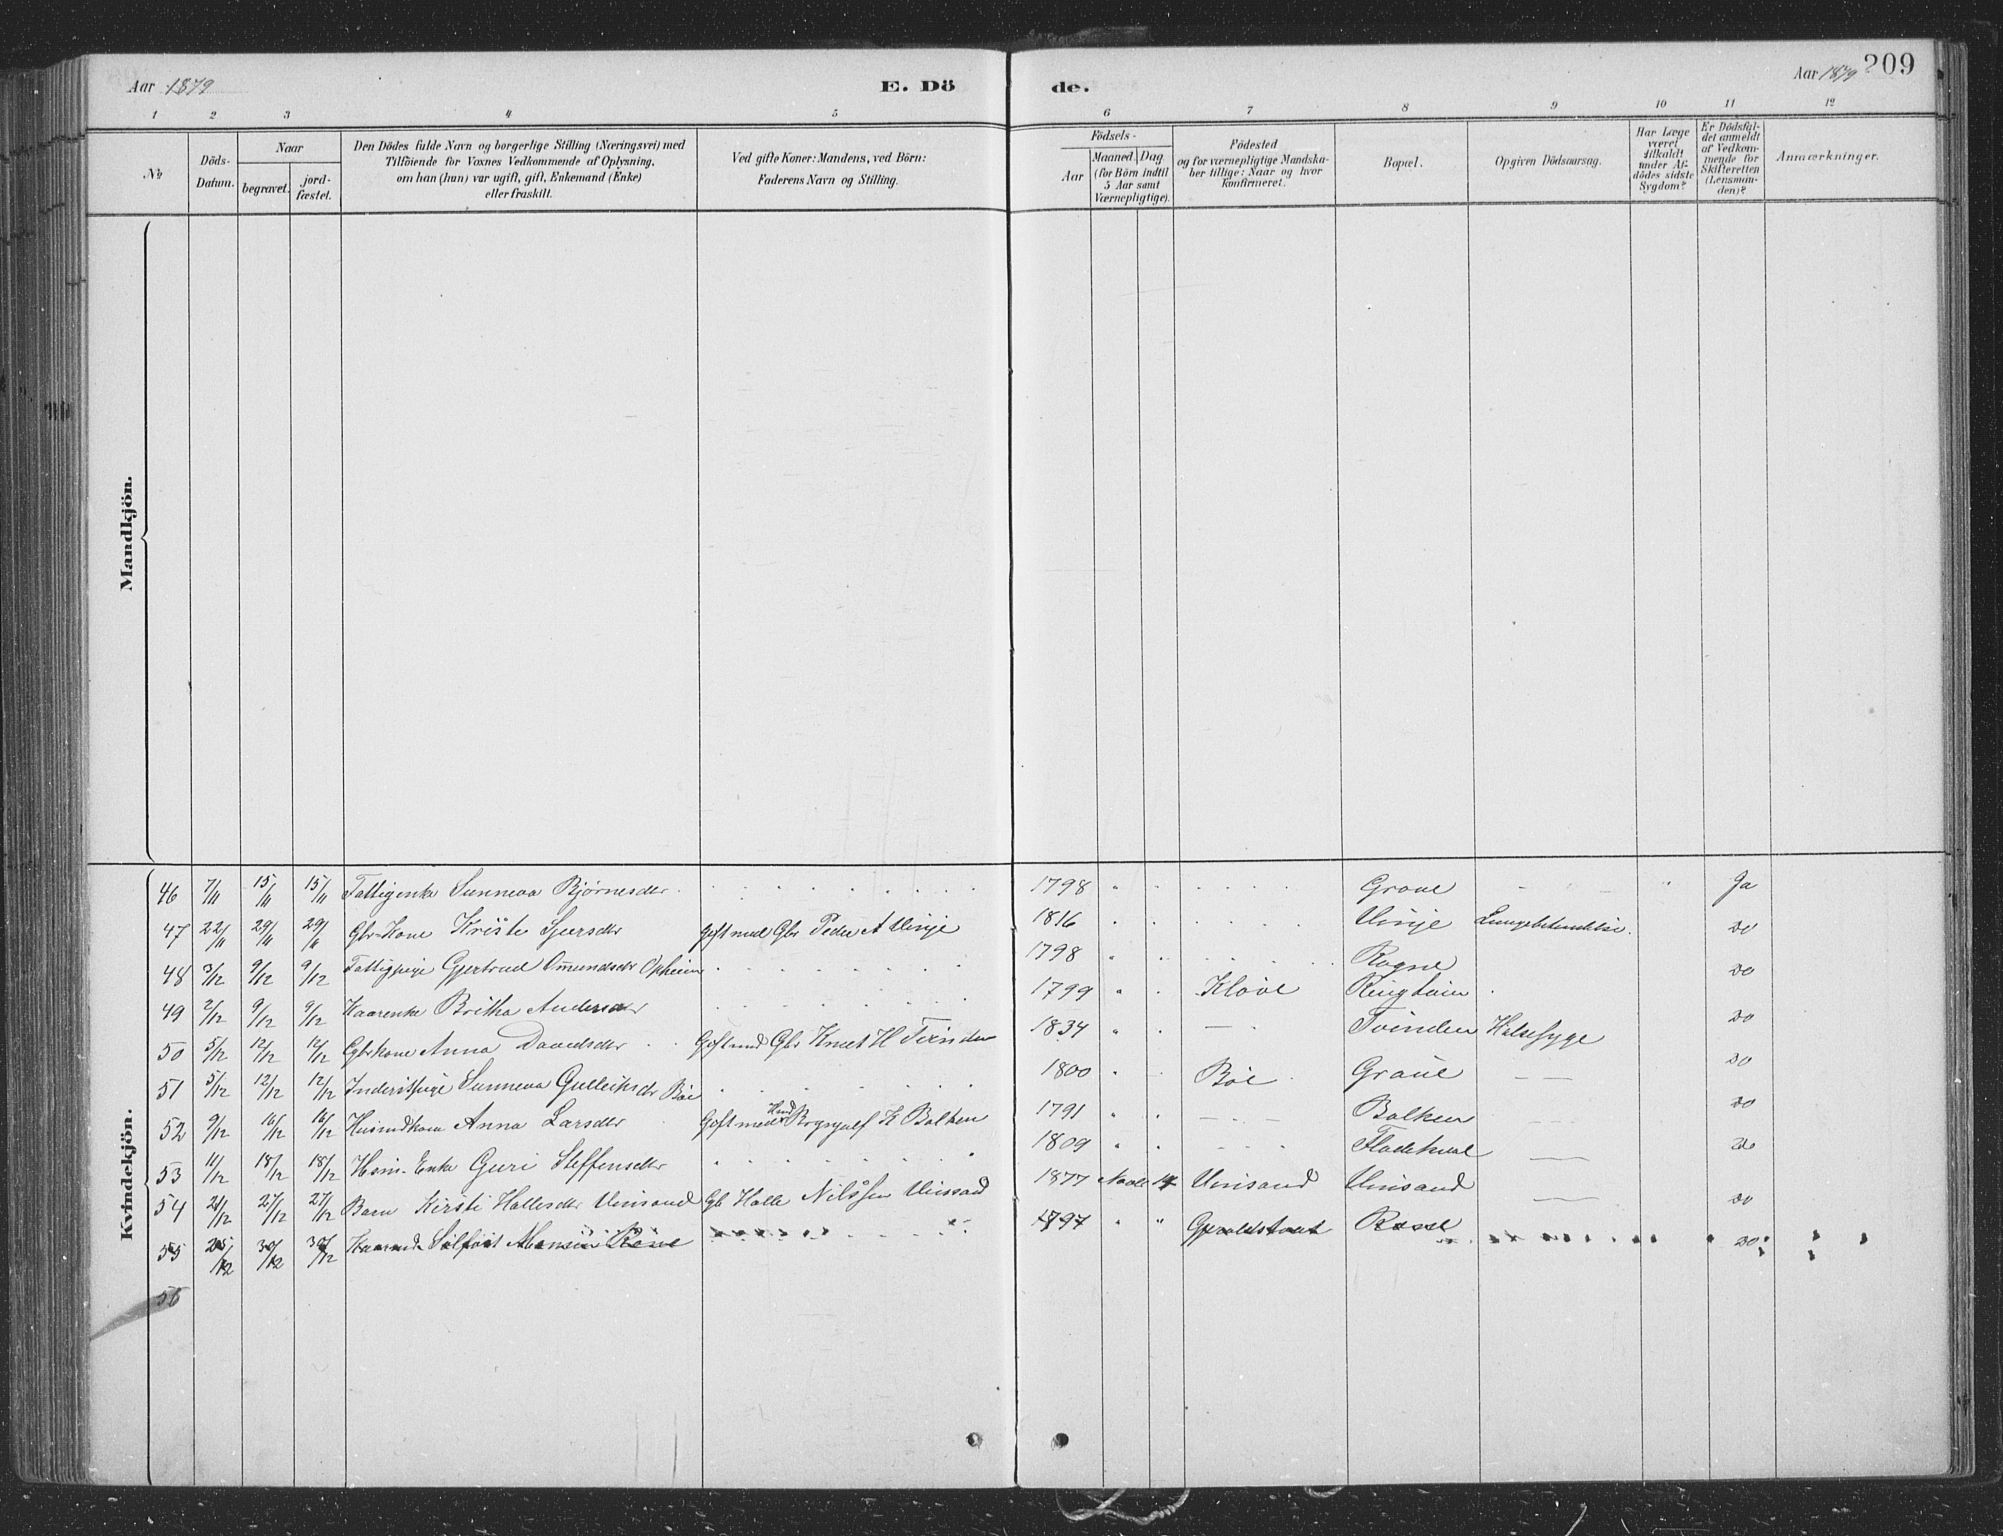 Aar 1879
E. Dö
de.
Aar 1879
209
1 2 3 4 5 6 7 8 9 10 11 12
№
Döds-
Datum.
Naar
begravet.
jord-
fæstet.
Den Dödes fulde Navn og borgerlige Stilling (Næringsvei) med
Tilföiende for Voxnes Vedkommende af Oplysning,
om han (hun) var ugift, gift, Enkemand (Enke)
eller fraskilt.
Ved gifte Koner: Mandens, ved Börn:
Faderens Navn og Stilling.
Födsels-
Aar
Maaned. Dag
(for Börn indtil
5 Aar samt
Værnepligtige).
Födested
og for værnepligtige Mandska-
ber tillige: Naar og hvor
konfirmeret.
Bopæl.
Opgiven Dödsaarsag.
Har Læge
været
tilkaldt
under Af-
dödes sidste
Sygdom?
Er Dödsfal-
det anmeldt
af Vedkom-
mende for
Skifteretten
(Lensman-
den)?
Anmærkninger.
Mandkjön.
Kvindekjön.
46 7/11 15/11 15/11 Fattigenke Sunneva Bjørnesdtr 1798 Graue Ja
47 22/11 29/11 29/11 Gbr-Kone Kristi Sjursdtr Gift med Gbr Peder A Vinje 1816 Vinje Lungebetændelse do
48 3/12 9/12 9/12 Fattigpige Gjertrud Omundsdr Opheim 1798 Rogne do
49 2/12 9/12 9/12 Kaarenke Britha Andersdr 1799 Kløve do
50 5/12 12/12 12/12 Kone Anna Davidsdtr Gift med Gbr Knut H Tvinden 1834 Tvinden Halssyge do
51 5/12 12/12 12/12 Inderstpige Sunneva Gulleiksdr Bøe 1800 Bøe Graue do
52 9/12 16/12 16/12 Husmdkone Anna Larsdtr Gift med K Balken 1791 Balken do
53 11/12 18/12 18/12 Huus-Enke Guri Steffensdtr 1809 do
54 21/12 27/12 27/12 Barn Kirsti Hallesdtr Vinsand Gb Halle Nilssen Vinsand 1877 14 Vinsand Vinsand do
55 25/12 30/12 30/12 1797 do
56